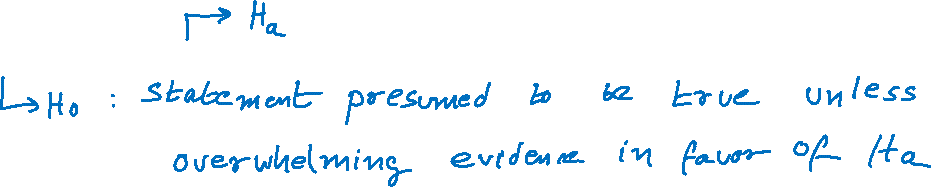 → Ha
↳ H0 : statement presumed to be true unless
overwhelming evidence in favor of Ha